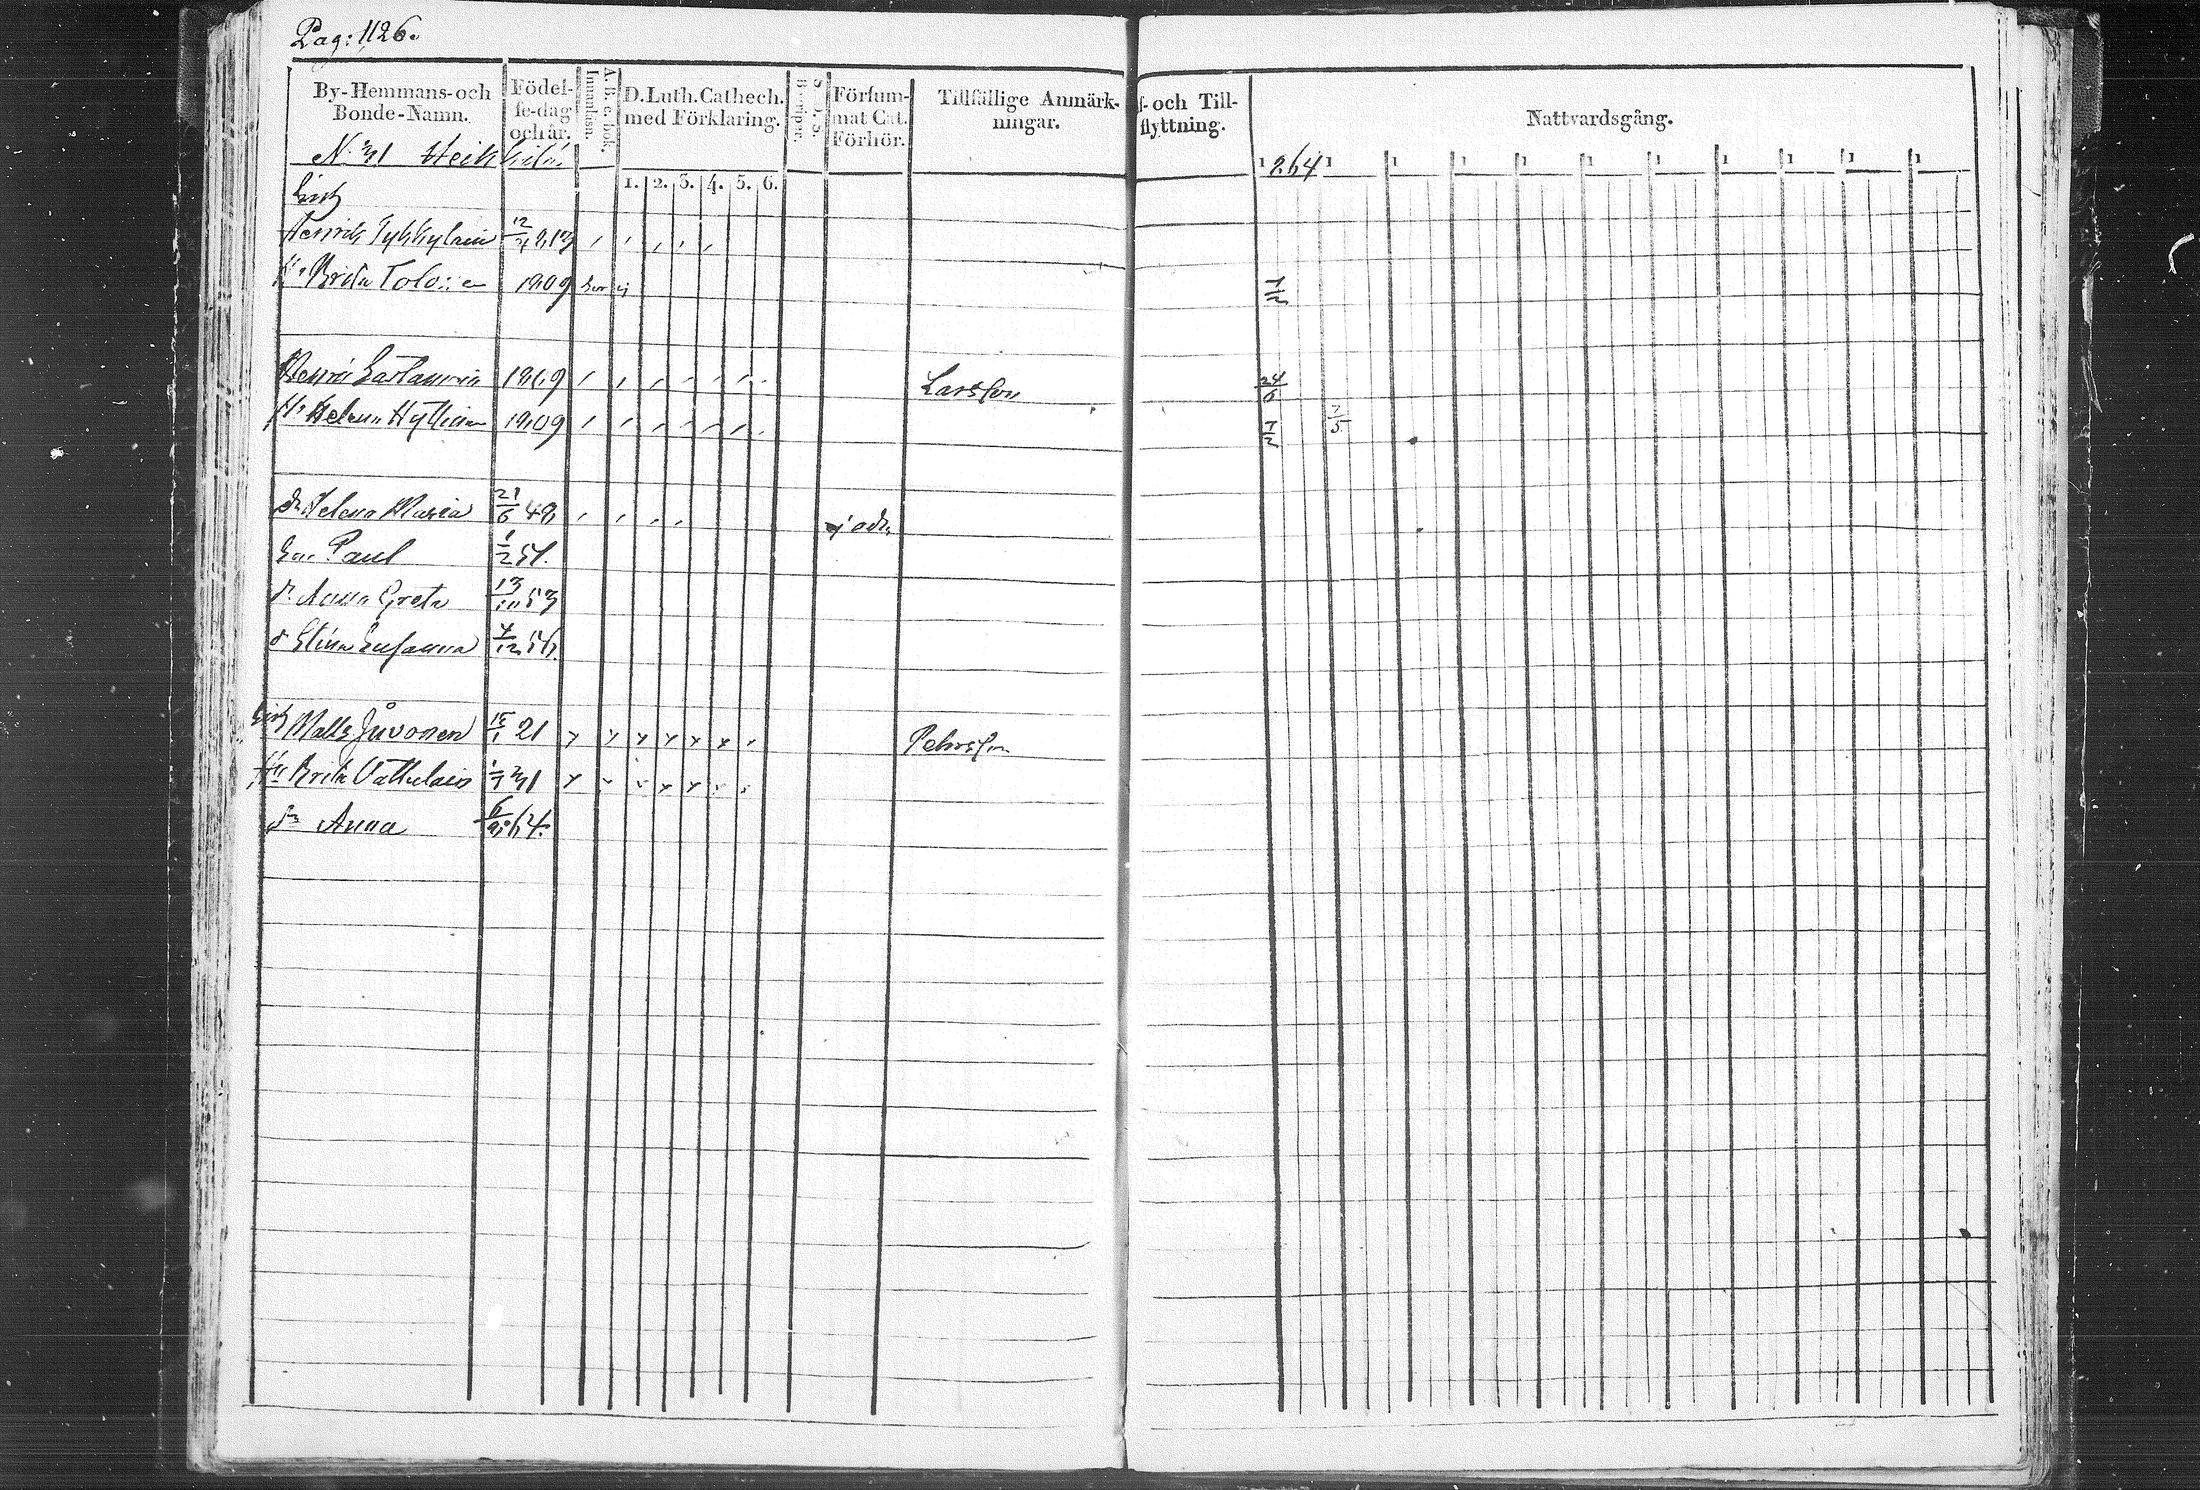 Pag: 1126.
By-Hemmans-och Bonde-Namn.
Födel-se-dag och år.
A. B. c. bok. Innanläsn.
D. Luth. Cathech. med Förklaring.
1. 2. 3. 4. 5. 6.
Försum-mat Cat. Förhör.
Tillfällige Anmärk-ningar.
f- och Till-flyttning.
Nattvardsgång.
1864 1 1 1 1 1 1 1 1 1 1
N: 31 Heikkilä
Henrik Tykkyläin
Hu Brita 1809 7/2
Henrik 1809 Larsson 24/6
Hu Helena 1809 7/2 7/5
dr Helena Maria 21/6 48
Son Paul 1/2 51.
dr Anna Greta 13/10 53
dr Stina Susanna 4/12 56.
Matts Juvonen 15/1 21 Pehrsson
Hu Brita Vattulain 1/7 31
dr Anna 64.